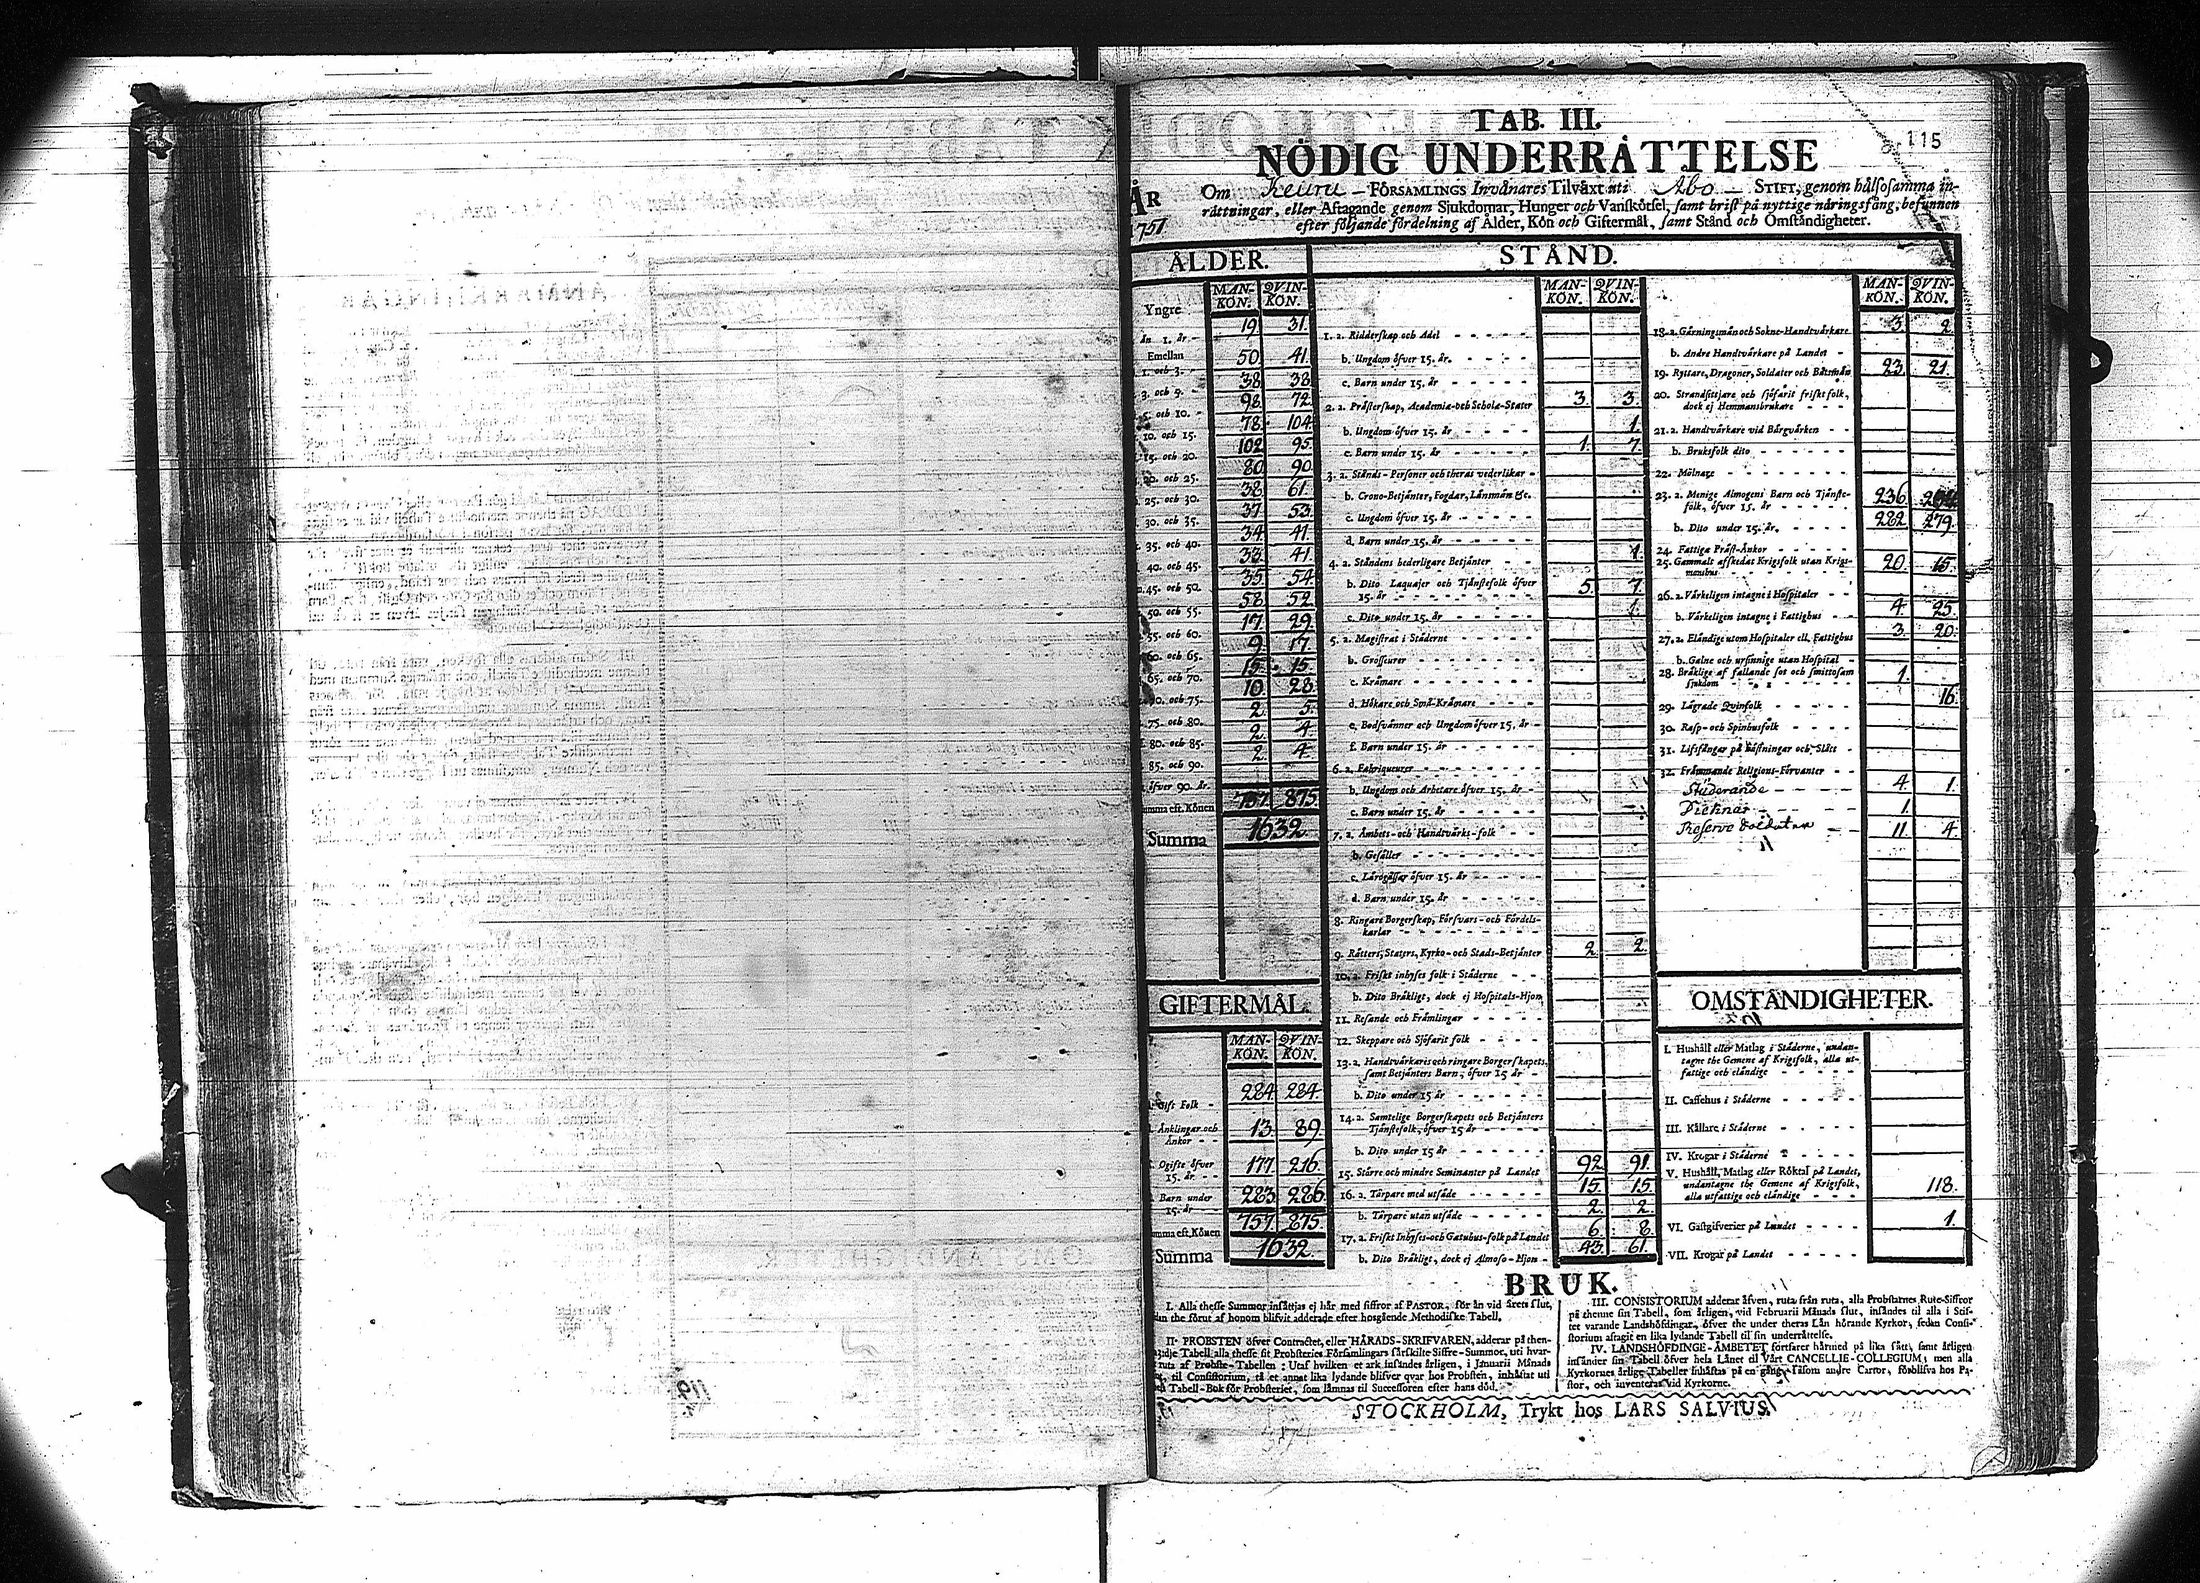 115
TAB. III.
NÖDIG UNDERRÅTTELSE
ÅR 1751
Om Keuru — FÖRSAMLINGS Invånares Tilväxt uti Åbo — STIFT, genom hälsosamma in-
råttningar, eller Aftagande genom Sjukdomar, Hunger och Vanskötsel, samt brist på nyttige näringsfång, befunnen
efter följande fördelning af Ålder, Kön och Giftermål, samt Stånd och Omständigheter.
ÅLDER.
MAN-KÖN. QVIN-KÖN.
Yngre än 1. år - 19 31.
Emellan 1. och 3. - 50 41.
3. och 5. - 38 38
5. och 10. - 98. 72.
10. och 15. 78. 104
15. och 20. 102 95.
20. och 25. 80 90.
25. och 30. 38 61.
30. och 35. 37 53.
35. och 40. 34 41.
40. och 45. 33 41.
45. och 50. 35 54
50. och 55. 58 52.
55. och 60. 17 29.
60. och 65. 9 17.
65. och 70. 15 15.
70. och 75. 10 28.
75. och 80. 2 5.
80. och 85. 2. 4.
85. och 90. 2. 4.
öfver 90. år.
Summa eft. Könen 757. 875
Summa 1632
GIFTERMÅL.
MAN-KÖN. QVIN-KÖN.
Gift Folk - 284. 284.
Änklingar och Änkor - - 13. 89.
Ogifte öfver 15. år - - 177. 216.
Barn under 15. år - - 283 286
Summa eft. Könen 757. 875.
Summa 1632.
STÅND.
MAN-KÖN. QVIN-KÖN.
1. a. Ridderskap och Adel
b. Ungdom öfver 15. år.
c. Barn under 15. år
2. a. Prästerskap, Academiæ- och Scholæ-Stater 3. 3.
b. Ungdom öfver 15. år 1.
c. Barn under 15. år 1. 7.
3. a. Stånds-Personer och theras vederlikar
b. Crono-Betjänter, Fogdar, Länsmän &c.
c. Ungdom öfver 15. år
d. Barn under 15. år
4. a. Ståndens hederligare Betjänter 1.
b. Dito Laquajer och Tjänstefolk öfver 15. år 5. 7.
c. Dito under 15. år 1.
5. a. Magistrat i Städerne
b. Grosseurer
c. Krämare
d. Hökare och Små-Krämare
e. Bodsvänner och Ungdom öfver 15. år
f. Barn under 15. år
6. a. Fabriqueurer
b. Ungdom och Arbetare öfver 15. år
c. Barn under 15. år
7. a. Ämbets- och Handtvärks-folk
b. Gesäller
c. Lärogåssar öfver 15. år
d. Barn under 15. år
8. Ringare Borgerskap, Försvars- och Fördels-karlar
9. Rätters, Staters, Kyrko- och Stads-Betjänter 2 2.
10. a. Friskt inhyses folk i Städerne
b. Dito Bräkligt, dock ej Hospitals-Hjon
11. Resande och Främlingar
12. Skeppare och Sjöfarit folk
13. a. Handtvärkaris och ringare Borgerskapets, samt Betjänters Barn, öfver 15 år
b. Dito under 15 år
14. a. Samtelige Borgerskapets och Betjänters Tjänstefolk, öfver 15 år
b. Dito under 15 år
15. Större och mindre Seminanter på Landet 92 91.
16. a. Torpare med utsäde 15. 15.
b. Torpare utan utsäde 2. 2.
17. a. Friskt Inhyses- och Gatuhus-folk på Landet 6. 8.
b. Dito Bräkligt, dock ej Almoso-Hjon 43. 61.
MAN-KÖN. QVIN-KÖN.
18. a. Gärningsmän och Sokne-Handtvärkare 3 2
b. Andre Handtvärkare på Landet
19. Ryttare, Dragoner, Soldater och Båtsmän 23. 21.
20. Strandsittjare och sjöfarit friskt folk, dock ej Hemmansbrukare
21. a. Handtvärkare vid Bärgvärken
b. Bruksfolk dito
22. Mölnare
23. a. Menige Almogens Barn och Tjänste-folk, öfver 15. år 236.
b. Dito under 15. år. 282. 279.
24. Fattiga Präst-Änkor
25. Gammalt afskedat Krigsfolk utan Krigs-mansbus 20. 15.
26. a. Värkeligen intagne i Hospitaler
b. Värkeligen intagne i Fattighus 4. 25.
27. a. Eländige utom Hospitaler ell. Fattighus 3. 20.
b. Galne och ursinnige utan Hospital
28. Bräklige af fallande sot och smittosam sjukdom 1.
29. Lägrade Qvinfolk 16.
30. Rasp- och Spinhusfolk
31. Lifsfångar på Fästningar och Slått
32. Främmande Religions-Förvanter
Studerande 4. 1.
1.
Reserve Soldater 11. 4.
OMSTÄNDIGHETER.
I. Hushåll eller Matlag i Städerne, undan-
tagne the Gemene af Krigsfolk, alla ut-
fattige och eländige
II. Caffehus i Städerne
III. Källare i Städerne
IV. Krogar i Städerne
V. Hushåll, Matlag eller Röktal på Landet,
undantagne the Gemene af Krigsfolk,
alla utfattige och eländige 118.
VI. Gästgifverier på Landet 1.
VII. Krogar på Landet
BRUK.
I. Alla thesse Summor insättjas ej här med siffror af PASTOR, för än vid årets slut,
än the förut af honom blifvit adderade efter hosgående Methodiske Tabell.
II. PROBSTEN öfver Contractet, eller HÄRADS-SKRIFVAREN, adderar på then-
na tredje Tabell alla thesse sit Probsteries Församlingars särskilte Siffre-Summor, uti hvar
ruta af Probste-Tabellen: Utaf hvilken et ark insändes årligen, i Januarii Månads
slut, til Consistorium, tå et annat lika lydande blifver qvar hos Probsten, inhäftat uti
en Tabell-Bok för Probsteriet, som lämnas til Successoren efter hans död.
III. CONSISTORIUM adderar äfven, ruta från ruta, alla Probstarnes Rute-Siffror
på thenne sin Tabell, som årligen, vid Februarii Månads slut, insändes til alla i Stif-
tet varande Landshöfdingar, öfver the under theras Län hörande Kyrkor, sedan Consi-
storium aftagit en lika lydande Tabell til sin underrättelse.
IV. LANDSHÖFDINGE-ÄMBETET fortfarer härmed på lika sätt, samt årligen
insänder sin Tabell öfver hela Länet til Vårt CANCELLIE-COLLEGIUM; men alla
Kyrkornes årlige Tabeller inhäftas på en gång, såsom andre Cartor, förblifva hos Pa-
stor, och inventeras vid Kyrkorne.
STOCKHOLM, Trykt hos LARS SALVIUS.